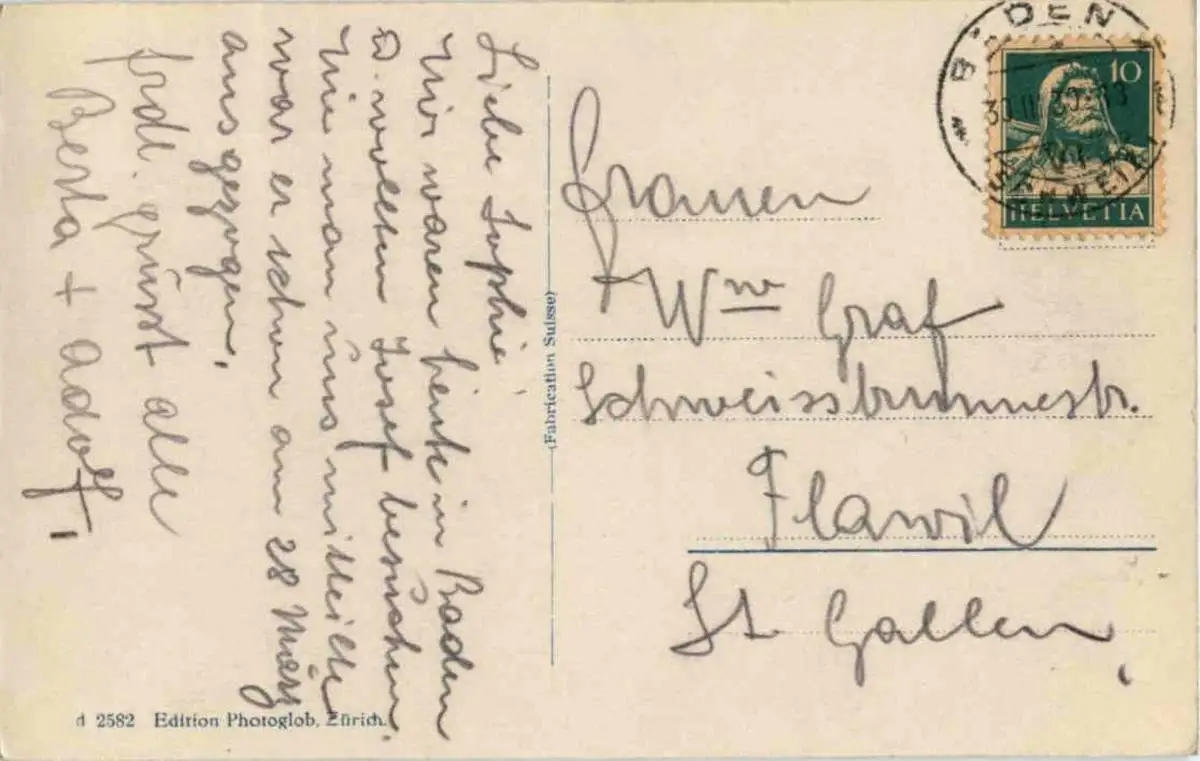 Liebe Sophie!
Wir waren heute in Baden
u. wollten Josef besuchen.
Wie man uns mitteilte
war er schon am 28 März
ausgezogen.
frdl. grüsst alle
Berta + Adolf.
(Fabrication Suisse)
BADEN
30.III.30
10
HELVETIA
Wwe Graf
Schweissbrunnestr.
Flawil
St Gallen
d 2582 Edition Photoglob, Zürich.